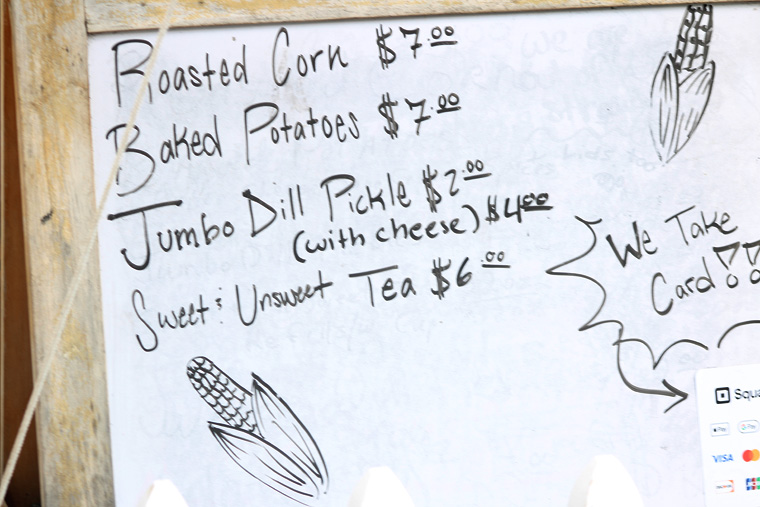 Roasted Corn $7.00
Baked Potatoes $7.00
Jumbo Dill Pickle $2.00
(with cheese) $4.00
Sweet & Unsweet Tea $6.00
We Take
Card!!
Pay
Pay
VISA